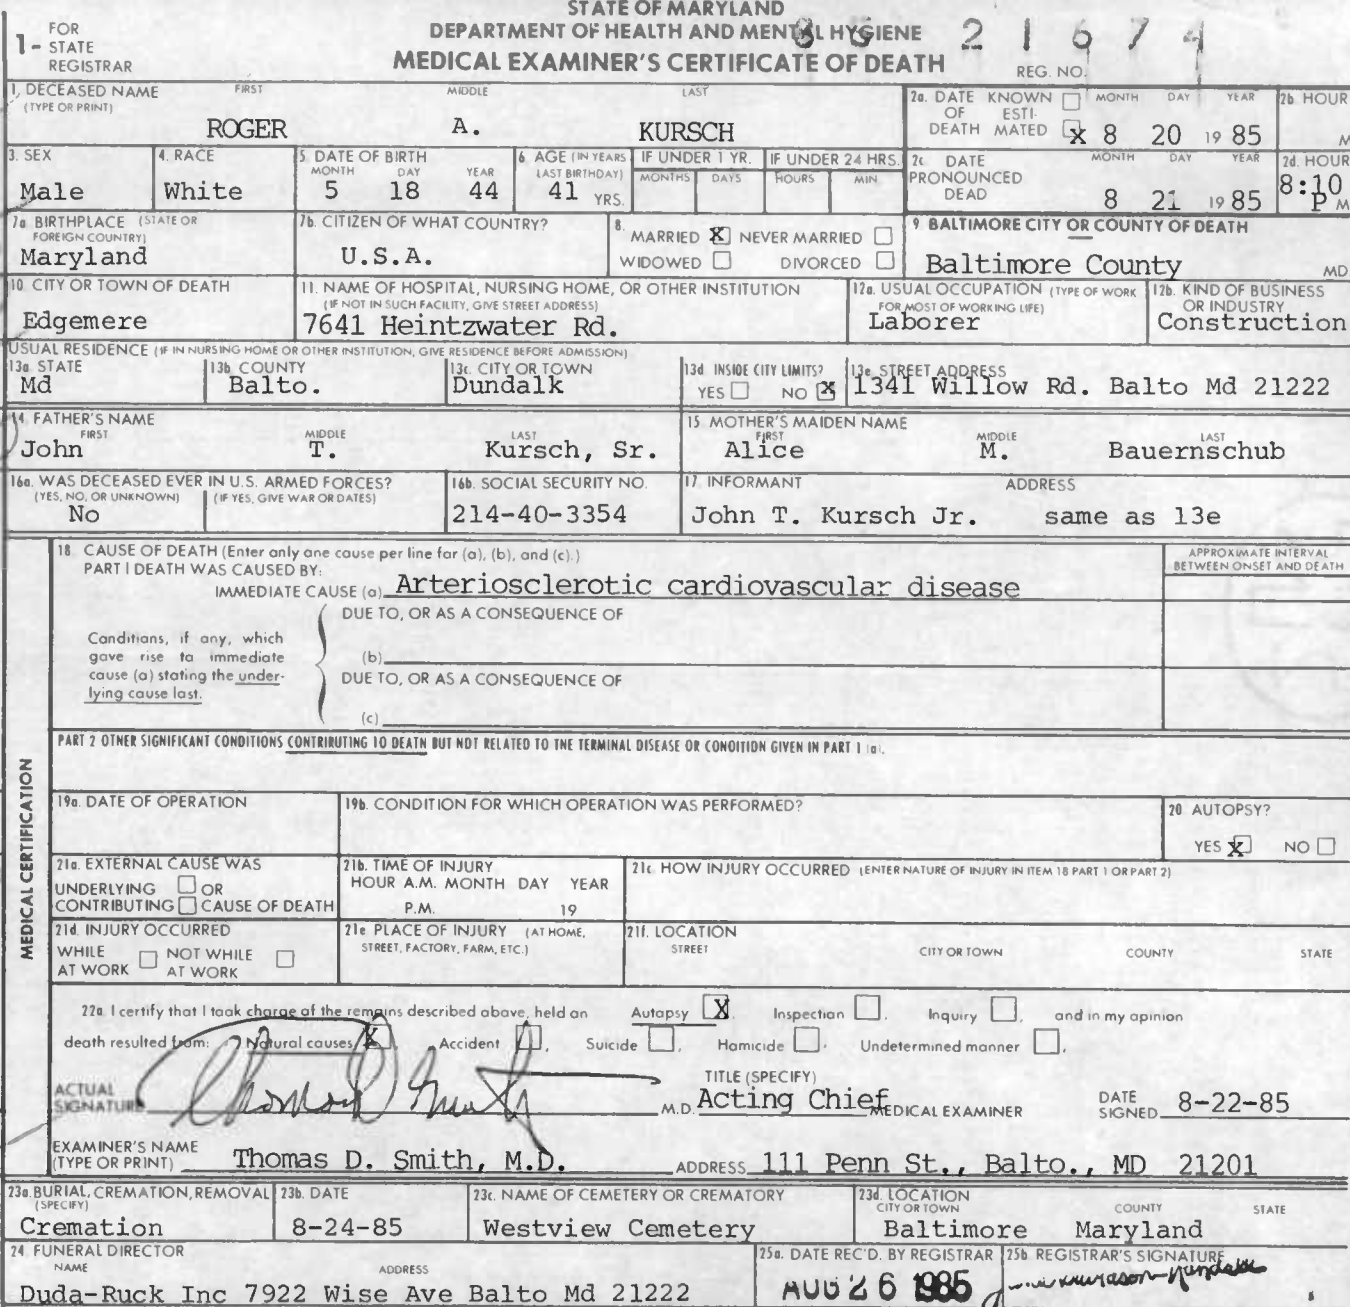 STATE OF MARYLAND
DEPARTMENT OF HEALTH AND MENTAL HYGIENE
MEDICAL EXAMINER'S CERTIFICATE OF DEATH
1- FOR STATE REGISTRAR
REG. NO. 85 21674
1. DECEASED NAME (TYPE OR PRINT) FIRST MIDDLE LAST
ROGER A. KURSCH
2a. DATE OF DEATH KNOWN ☐ ESTIMATED ☒ MONTH DAY YEAR
8 20 1985
2b HOUR M
3. SEX
Male
4. RACE
White
5. DATE OF BIRTH MONTH DAY YEAR
5 18 44
6. AGE (IN YEARS LAST BIRTHDAY)
41 YRS.
IF UNDER 1 YR. MONTHS DAYS
IF UNDER 24 HRS. HOURS MIN
2c DATE PRONOUNCED DEAD MONTH DAY YEAR
8 21 1985
2d. HOUR
8:10 P M
7a BIRTHPLACE (STATE OR FOREIGN COUNTRY)
Maryland
7b. CITIZEN OF WHAT COUNTRY?
U.S.A.
8. MARRIED ☒ NEVER MARRIED ☐
WIDOWED ☐ DIVORCED ☐
9 BALTIMORE CITY OR COUNTY OF DEATH
Baltimore County MD
10. CITY OR TOWN OF DEATH
Edgemere
11. NAME OF HOSPITAL, NURSING HOME, OR OTHER INSTITUTION
(IF NOT IN SUCH FACILITY, GIVE STREET ADDRESS)
7641 Heintzwater Rd.
12a. USUAL OCCUPATION (TYPE OF WORK FOR MOST OF WORKING LIFE)
Laborer
12b. KIND OF BUSINESS OR INDUSTRY
Construction
USUAL RESIDENCE (IF IN NURSING HOME OR OTHER INSTITUTION, GIVE RESIDENCE BEFORE ADMISSION)
13a STATE
Md
13b COUNTY
Balto.
13c. CITY OR TOWN
Dundalk
13d INSIDE CITY LIMITS?
YES ☐ NO ☒
13e STREET ADDRESS
1341 Willow Rd. Balto Md 21222
14. FATHER'S NAME FIRST MIDDLE LAST
John T. Kursch, Sr.
15 MOTHER'S MAIDEN NAME FIRST MIDDLE LAST
Alice M. Bauernschub
16a. WAS DECEASED EVER IN U.S. ARMED FORCES?
(YES, NO, OR UNKNOWN) (IF YES, GIVE WAR OR DATES)
No
16b. SOCIAL SECURITY NO.
214-40-3354
17 INFORMANT ADDRESS
John T. Kursch Jr. same as 13e
MEDICAL CERTIFICATION
18 CAUSE OF DEATH (Enter only one cause per line for (a), (b), and (c).)
PART I DEATH WAS CAUSED BY:
APPROXIMATE INTERVAL BETWEEN ONSET AND DEATH
IMMEDIATE CAUSE (a) Arteriosclerotic cardiovascular disease
DUE TO, OR AS A CONSEQUENCE OF
Conditions, if any, which gave rise to immediate cause (a) stating the underlying cause last.
(b)
DUE TO, OR AS A CONSEQUENCE OF
(c)
PART 2 OTHER SIGNIFICANT CONDITIONS CONTRIBUTING TO DEATH BUT NOT RELATED TO THE TERMINAL DISEASE OR CONDITION GIVEN IN PART 1 (a).
19a. DATE OF OPERATION
19b. CONDITION FOR WHICH OPERATION WAS PERFORMED?
20 AUTOPSY?
YES ☒ NO ☐
21a. EXTERNAL CAUSE WAS
UNDERLYING ☐ OR
CONTRIBUTING ☐ CAUSE OF DEATH
21b. TIME OF INJURY
HOUR A.M. MONTH DAY YEAR
P.M. 19
21c. HOW INJURY OCCURRED (ENTER NATURE OF INJURY IN ITEM 18 PART 1 OR PART 2)
21d. INJURY OCCURRED
WHILE AT WORK ☐ NOT WHILE AT WORK ☐
21e PLACE OF INJURY (AT HOME, STREET, FACTORY, FARM, ETC.)
21f. LOCATION
STREET CITY OR TOWN COUNTY STATE
22a I certify that I took charge of the remains described above, held an Autopsy ☒. Inspection ☐. Inquiry ☐, and in my opinion
death resulted from: Natural causes ☒ Accident ☐, Suicide ☐, Homicide ☐. Undetermined manner ☐.
ACTUAL SIGNATURE Thomas D. Smith M.D.
TITLE (SPECIFY)
Acting Chief MEDICAL EXAMINER
DATE SIGNED 8-22-85
EXAMINER'S NAME (TYPE OR PRINT) Thomas D. Smith, M.D.
ADDRESS 111 Penn St., Balto., MD 21201
23a. BURIAL, CREMATION, REMOVAL (SPECIFY)
Cremation
23b. DATE
8-24-85
23c. NAME OF CEMETERY OR CREMATORY
Westview Cemetery
23d. LOCATION
CITY OR TOWN COUNTY STATE
Baltimore Maryland
24 FUNERAL DIRECTOR
NAME ADDRESS
Duda-Ruck Inc 7922 Wise Ave Balto Md 21222
25a. DATE REC'D. BY REGISTRAR
AUG 26 1985
25b REGISTRAR'S SIGNATURE